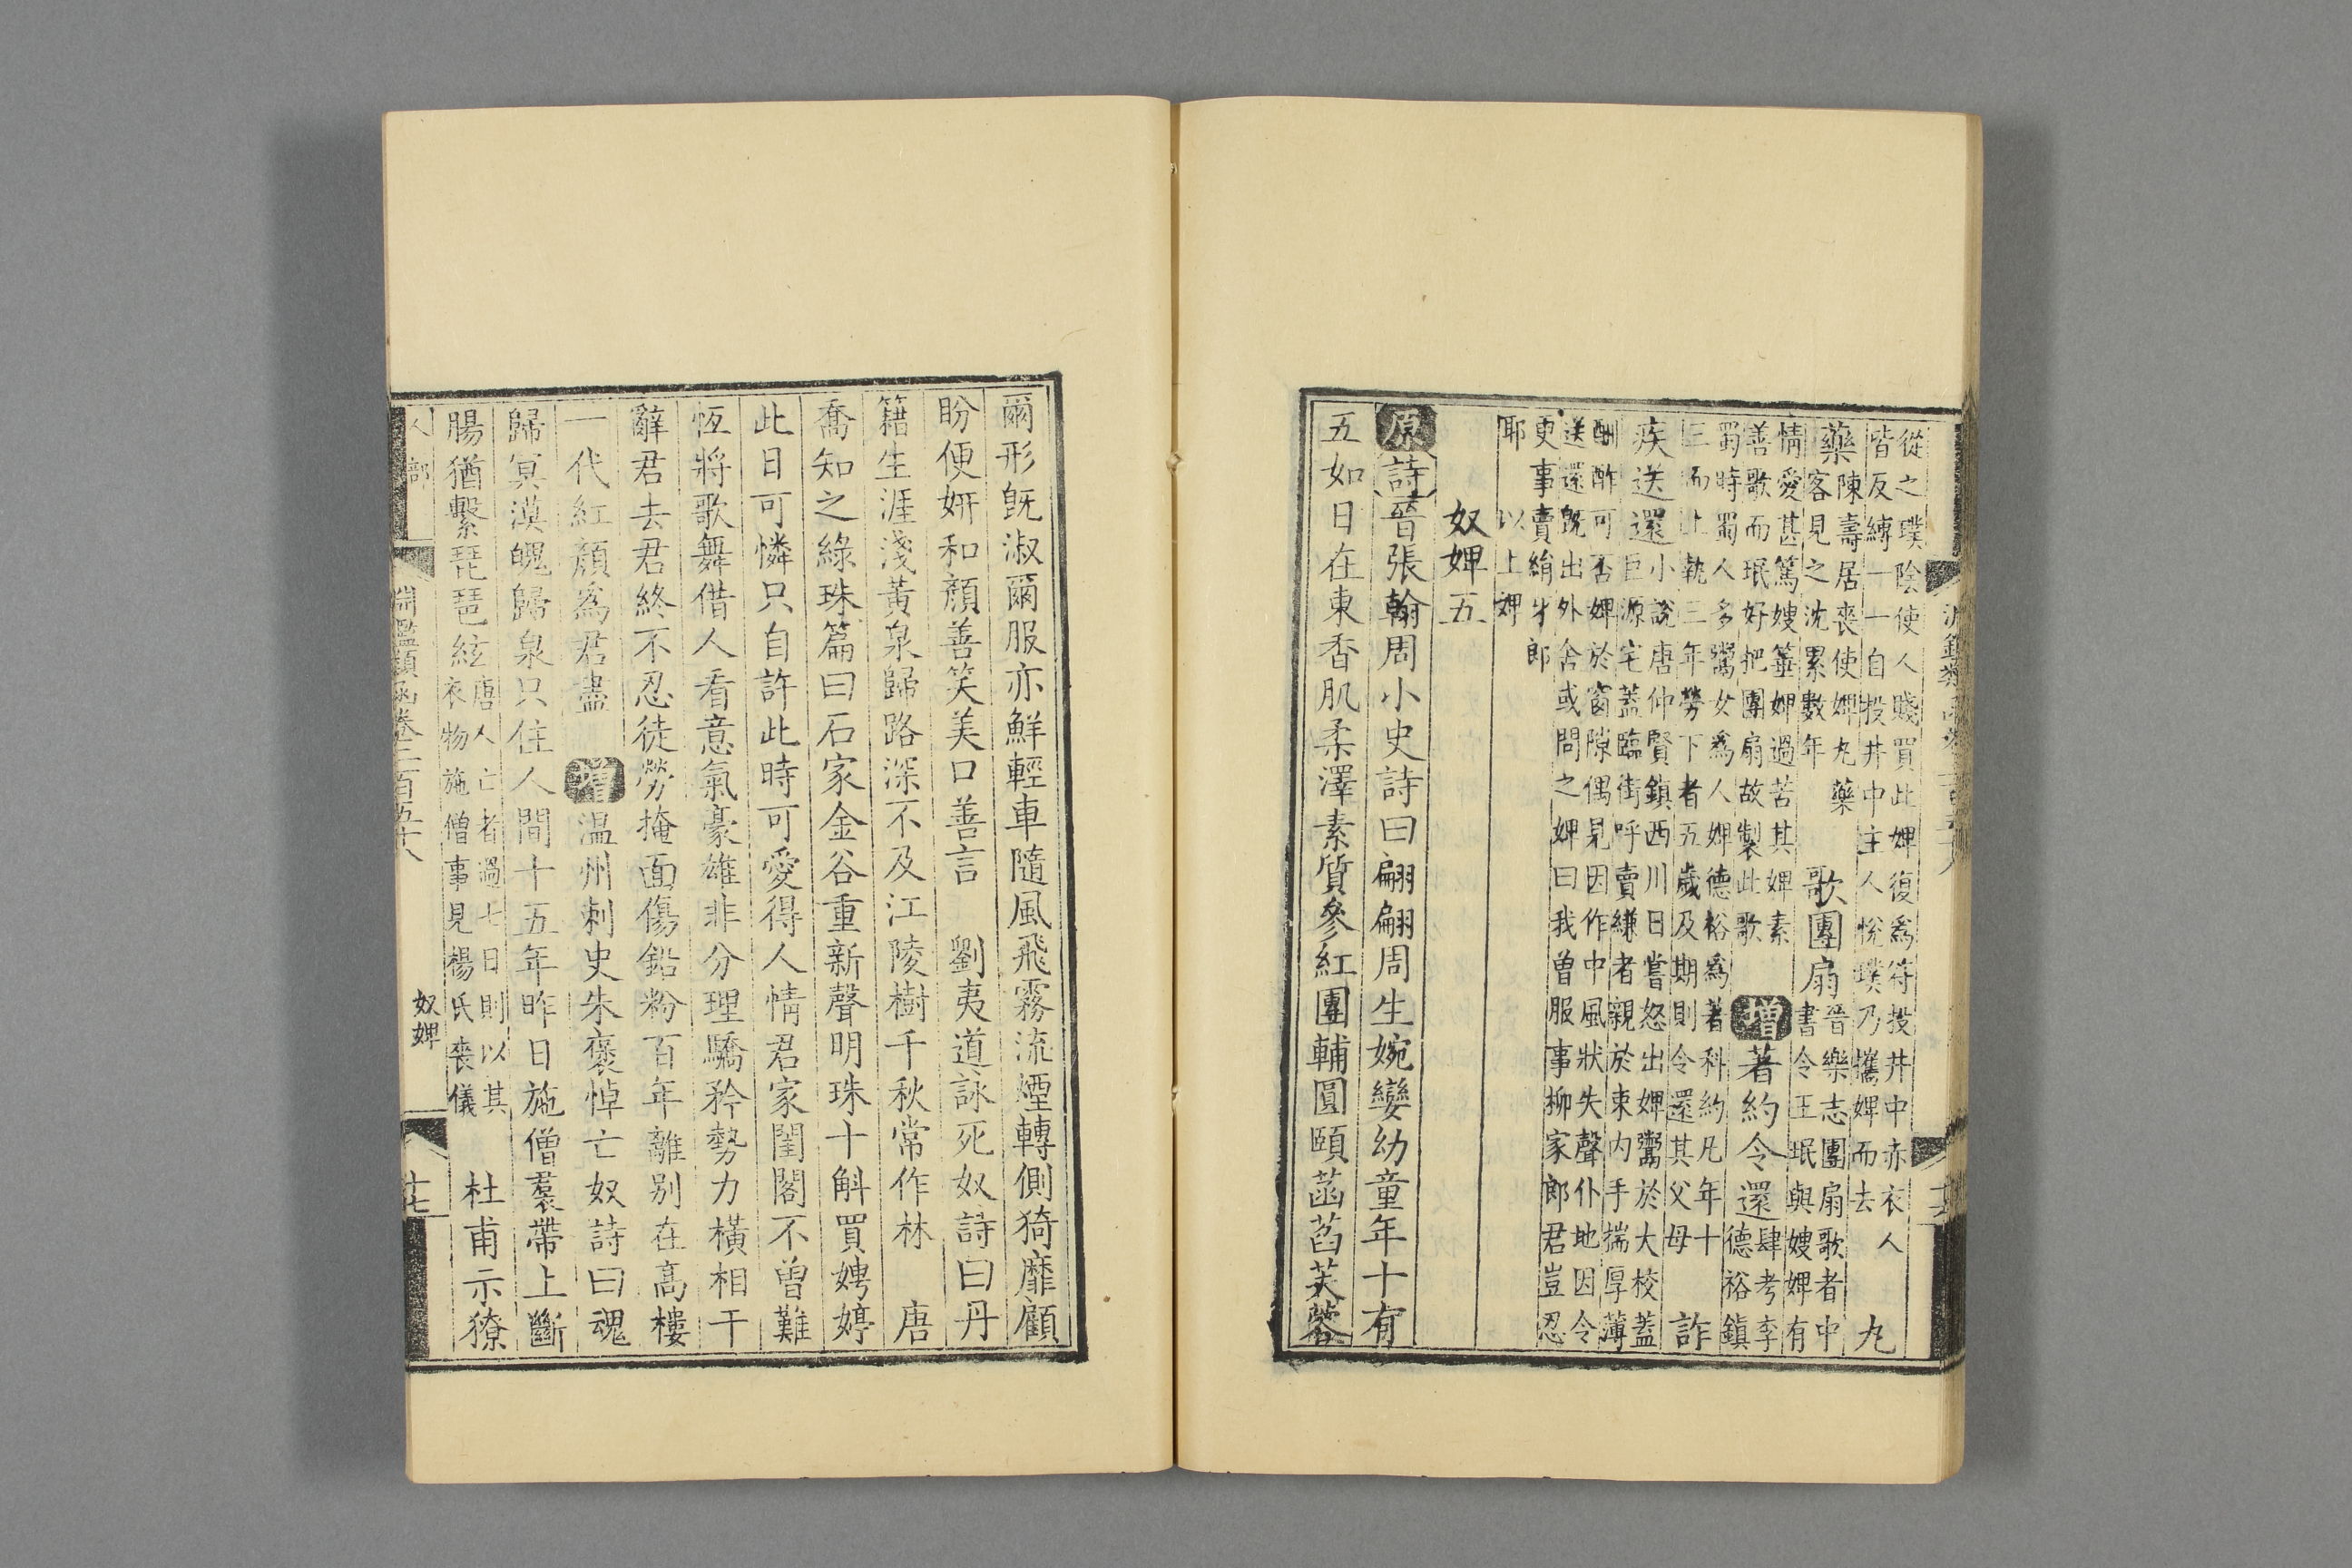 從之璞陰使人賤買此婢復為符投井中赤衣人
皆反縛一一自投井中主人悅璞乃攜婢而去
九
藥
陳壽居喪使婢丸藥
客見之沈累數年
歌團扇
晉樂志團扇歌者中
書令王珉與嫂婢有
情愛甚篤嫂箠婢過苦其婢素
善歌而珉好把團扇故製此歌
增著約令還
肆考李
德裕鎮
蜀時蜀人多鬻女為人婢德裕為著科約凡年十
三而上執三年勞下者五歲及期則令還其父母
詐
疾送還
小說唐仲賢鎮西川日嘗怒出婢鬻於大校蓋
巨源宅蓋臨街呼賣縑者親於束内手揣厚薄
酬酢可否婢於窗隙偶見因作中風狀失聲仆地因令
送還既出外舍或問之婢曰我曾服事柳家郎君豈忍
更事賣絹牙郎
耶 以上婢
奴婢五
原詩晉張翰周小史詩曰翩翩周生婉孌幼童年十有
五如日在東香肌柔澤素質參紅團輔圓頤菡萏芙蓉
爾形既淑爾服亦鮮輕車隨風飛霧流煙轉側猗靡顧
盼便妍和顏善笑美口善言 劉夷道詠死奴詩曰丹
籍生涯淺黃泉歸路深不及江陵樹千秋常作林 唐
喬知之綠珠篇曰石家金谷重新聲明珠十斛買娉婷
此日可憐只自許此時可愛得人情君家閨閣不曾難
恆將歌舞借人看意氣豪雄非分理驕矜勢力橫相干
辭君去君終不忍徒勞掩面傷鉛粉百年離別在高樓
一代紅顏為君盡 增温州刺史朱褒悼亡奴詩曰魂
歸冥漠魄歸泉只住人間十五年昨日施僧裙帶上斷
腸猶繫琵琶絃
唐人亡者過七日則以其
衣物施僧事見楊氏喪儀
杜甫示獠
人部
淵鑑類函卷三百五十八
奴婢
十七